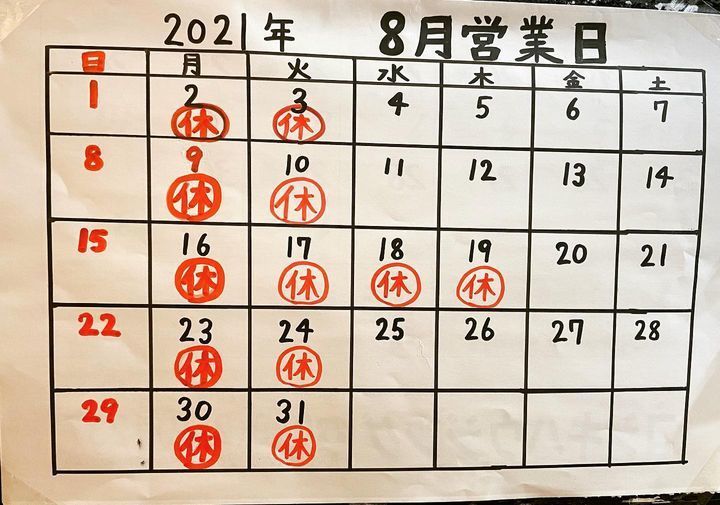 2021年 8月営業日
日 月 火 水 木 金 土
1 2 3 4 5 6 7
休 休
8 9 10 11 12 13 14
休 休
15 16 17 18 19 20 21
休 休 休 休
22 23 24 25 26 27 28
休 休
29 30 31
休 休